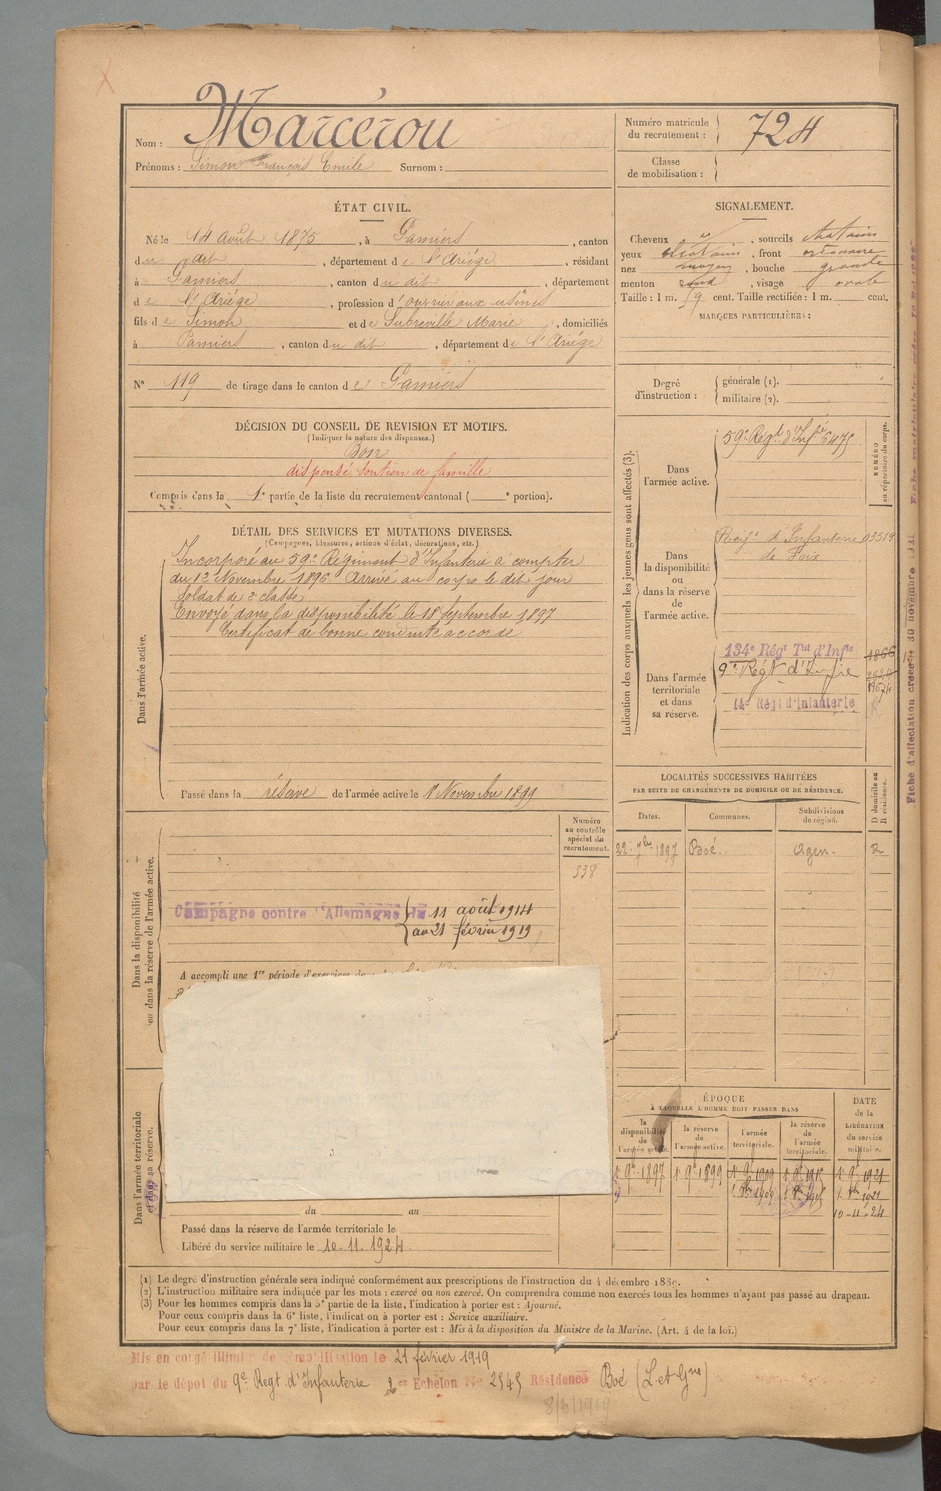 Nom : Marcérou
Prénoms : Simon François Emile Surnom :
Numéro matricule du recrutement : 724
Classe de mobilisation :
ÉTAT CIVIL.
Né le 14 août 1875, à Pamiers, canton
du dit, département de l'Ariége, résidant
à Pamiers, canton du dit, département
de l'Ariége, profession d'ouvrier aux usines
fils de Simon et de Subreville Marie, domiciliés
à Pamiers, canton du dit, département de l'Ariége
N° 119 de tirage dans le canton de Pamiers
SIGNALEMENT.
Cheveux et, sourcils chatains
yeux chatains, front ordinaire
nez moyen, bouche grande
menton rond, visage ovale
Taille : 1 m. cent. Taille rectifiée : 1 m. cent.
MARQUES PARTICULIÈRES :
Degré d'instruction : générale (1).
militaire (2).
DÉCISION DU CONSEIL DE REVISION ET MOTIFS.
(Indiquer la nature des dispenses.)
Bon
dispensé soutien de famille
Compris dans la 1e partie de la liste du recrutement cantonal ( e portion).
DÉTAIL DES SERVICES ET MUTATIONS DIVERSES.
(Campagnes, blessures, actions d'éclat, décorations, etc.)
Dans l'armée active.
Incorporé au 59e Régiment d'Infanterie à compter
du 12 Novembre 1896 Arrivé au corps le dit jour
soldat de 2e classe
Envoyé dans la disponibilité le 18 Septembre 1897
Certificat de bonne conduite accordé
Passé dans la réserve de l'armée active le 1 Novembre 1899
Indication des corps auxquels les jeunes gens sont affectés (3).
NUMÉRO au répertoire du corps.
Dans l'armée active.
59e Régt d'Infie 6475
Dans la disponibilité ou dans la réserve de l'armée active.
Régt d'Infanterie 03514
de Foix
Dans l'armée territoriale et dans sa réserve.
134e Régt Tal d'Infie 1866
9e Régt d'Infie
Régt d'Infanterie
LOCALITÉS SUCCESSIVES HABITÉES
PAR SUITE DE CHANGEMENTS DE DOMICILE OU DE RÉSIDENCE.
Dates. Communes. Subdivisions de région. D domicile ou R résidence.
22 7bre 1897 Boé. Agen. R
Dans la disponibilité ou dans la réserve de l'armée active.
Numéro au contrôle spécial du recrutement.
338
Campagne contre l'Allemagne du 11 août 1914
au 21 février 1919
A accompli une 1re période d'exercices dans
Dans l'armée territoriale et dans sa réserve.
du au
Passé dans la réserve de l'armée territoriale le
Libéré du service militaire le 10-11-1924.
ÉPOQUE
À LAQUELLE L'HOMME DOIT PASSER DANS
la disponibilité de l'armée active. la réserve de l'armée active. l'armée territoriale. la réserve de l'armée territoriale. DATE de la LIBÉRATION du service militaire.
1 9bre 1897 1 9bre 1899 1 9bre 1909 1 9bre 1915 1 9bre 1921
10-11-24
(1) Le degré d'instruction générale sera indiqué conformément aux prescriptions de l'instruction du 4 décembre 1889.
(2) L'instruction militaire sera indiquée par les mots : exercé ou non exercé. On comprendra comme non exercés tous les hommes n'ayant pas passé au drapeau.
(3) Pour les hommes compris dans la 5e partie de la liste, l'indication à porter est : Ajourné.
Pour ceux compris dans la 6e liste, l'indication à porter est : Service auxiliaire.
Pour ceux compris dans la 7e liste, l'indication à porter est : Mis à la disposition du Ministre de la Marine. (Art. 4 de la loi.)
Mis en congé illimité de démobilisation le 21 février 1919
par le dépot du 9e Regt d'Infanterie 2er Echelon No 2545 Résidence Boé (L-et-Gne)
8/3/1919